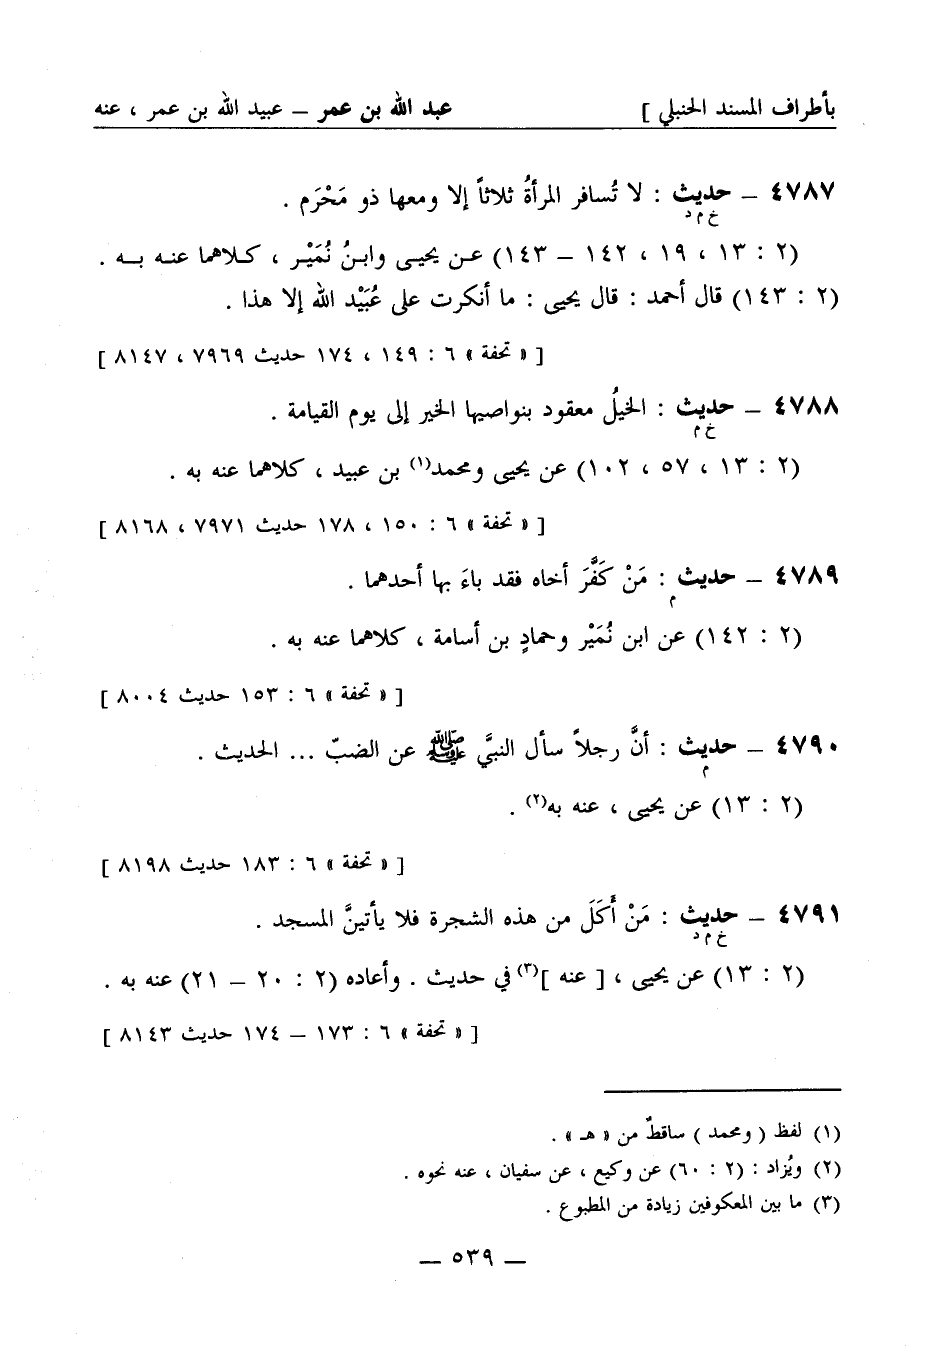 بأطراف المسند الحنبلي ] عبد الله بن عمر – عبيد الله بن عمر ، عنه
٤٧٨٧ – حديث : لا تُسافر المرأةُ ثلاثاً إلا ومعها ذو مَحْرَم .
خ م د
(٢ : ١٣ ، ١٩ ، ١٤٢ – ١٤٣) عن يحيى وابنُ نُمَيْر ، كلاهما عنه به .
(٢ : ١٤٣) قال أحمد : قال يحيى : ما أنكرت على عُبَيْد الله إلا هذا .
[ « تحفة » ٦ : ١٤٩ ، ١٧٤ حديث ٧٩٦٩ ، ٨١٤٧ ]
٤٧٨٨ – حديث : الخيلُ معقود بنواصيها الخير إلى يوم القيامة .
خ م
(٢ : ١٣ ، ٥٧ ، ١٠٢) عن يحيى ومحمد(١) بن عبيد ، كلاهما عنه به .
[ « تحفة » ٦ : ١٥٠ ، ١٧٨ حديث ٧٩٧١ ، ٨١٦٨ ]
٤٧٨٩ – حديث : مَنْ كَفَّرَ أخاه فقد باءَ بها أحدهما .
م
(٢ : ١٤٢) عن ابن نُمَيْر وحمادٍ بن أسامة ، كلاهما عنه به .
[ « تحفة » ٦ : ١٥٣ حديث ٨٠٠٤ ]
٤٧٩٠ – حديث : أنَّ رجلاً سأل النبيَّ ﷺ عن الضبّ ... الحديث .
م
(٢ : ١٣) عن يحيى ، عنه به(٢) .
[ « تحفة » ٦ : ١٨٣ حديث ٨١٩٨ ]
٤٧٩١ – حديث : مَنْ أَكَلَ من هذه الشجرة فلا يأتينَّ المسجد .
خ م د
(٢ : ١٣) عن يحيى ، [ عنه ](٣) في حديث . وأعاده (٢ : ٢٠ – ٢١) عنه به .
[ « تحفة » ٦ : ١٧٣ – ١٧٤ حديث ٨١٤٣ ]
(١) لفظ ( ومحمد ) ساقطٌ من « هـ » .
(٢) ويُزاد : (٢ : ٦٠) عن وكيع ، عن سفيان ، عنه نحوه .
(٣) ما بين المعكوفين زيادة من المطبوع .
– ٥٣٩ –